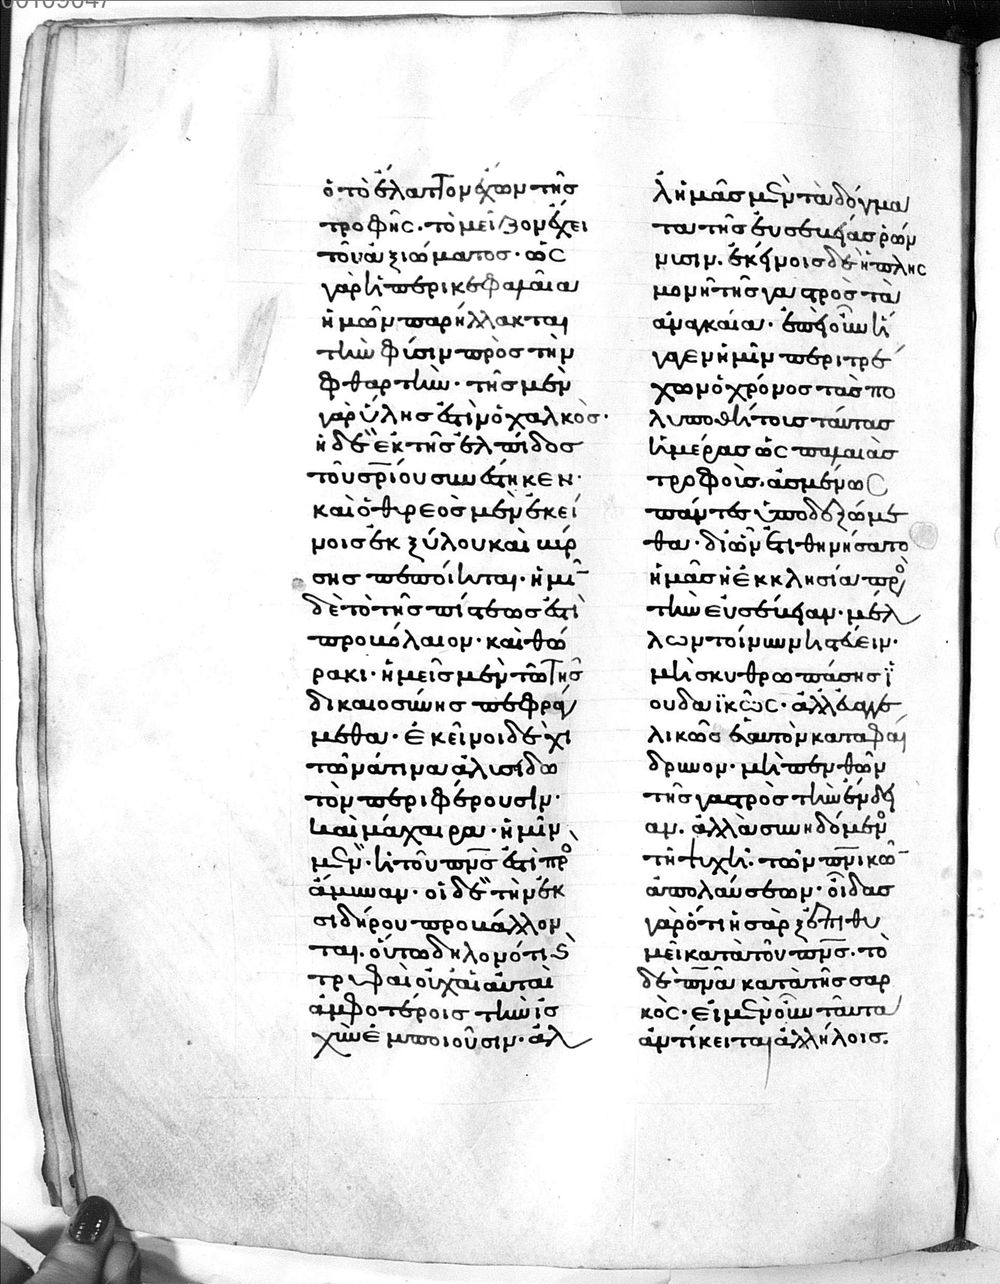 00109047
ὁ τὸ ἔλαττον ἔχων τῆς
τροφῆς· τὸ μεῖζον ἔχει
τοῦ ἀξιώματος· ὡς
γὰρ ἡ περικεφαλαία
ἡμῶν παρήλλακται
τὴν φύσιν πρὸς τὴν
φθαρτὴν· τῆς μὲν
γὰρ ὕλης ἐστὶν ὁ χαλκὸς·
ἡ δὲ ἐκ τῆς ἐλπίδος
τοῦ σ̅ρ̅ίου συνέστηκεν·
καὶ ὁ θυρεὸς μὲν ἐκεί
νοις ἐκ ξύλου καὶ βύρ
σης πεποίηται· ἡμῖν
δὲ τὸ τῆς πίστεως ἐστὶ
προβόλαιον· καὶ θώ
ρακι· ἡμεῖς μὲν τῶ τῆς
δικαιοσύνης πεφρά
μεθα· ἐκεῖνοι δὲ χι
τῶνά τινα ἁλυσιδω
τὸν περιφέρουσιν·
καὶ μάχαιρα· ἡμῖν
μὲν· ἡ τοῦ π̅ν̅ς̅ ἐστὶ πρὸ
ἄμυναν· οἱ δὲ τὴν ἐκ
σιδήρου προβάλλον
ται· οὕτω δῆλον ὅτι
τρυφαὶ οὐχ αἱ αὐταὶ
ἀμφοτέροις τὴν ἰσ
χὺν ἐμποιοῦσιν· ἀλ
λ ἡμᾶς μὲν τὰ δόγμα
τα τῆς εὐσεβείας ῥων
νυσιν· ἐκείνοις δὲ ἡ πλησ
μονὴ τῆς γαστρὸς τὰ
ἀναγκαῖα· ἐπεὶ οὖν ἤ
γαγεν ἡμῖν περιτρέ
χων ὁ χρόνος τὰς πο
λυποθήτους ταύτας
ἡμέρας ὡς παλαιὰς
τροφοὺς· ἀσμένως
πάντες ὑποδεξώμε
θα· δι ὧν ἐτιθηνήσατο
ἡμᾶς ἡ ἐκκλησία πρὸ
τὴν εὐσέβειαν· μέλ
λων τοίνυν νηστεύειν·
μὴ σκυθρωπάσης ϊ
ουδαϊκῶς· ἀλλ εὐαγγε
λικῶς ἑαυτὸν καταφαί
δρυνον· μὴ πενθῶν
τῆς γαστρὸς τὴν ἔνδει
αν· ἀλλὰ συνηδόμενος
τῆ ψυχῆ· τῶν π̅ν̅ικῶν
ἀπολαύσεων· οἶδας
γὰρ ὅτι ἡ σὰρξ ἐπιθυ
μεῖ κατὰ τοῦ π̅ν̅ς̅· τὸ
δὲ π̅ν̅α̅ κατὰ τῆς σαρ
κὸς· εἰ μὲν οὖν ταῦτα
ἀντίκειται ἀλλήλοις·